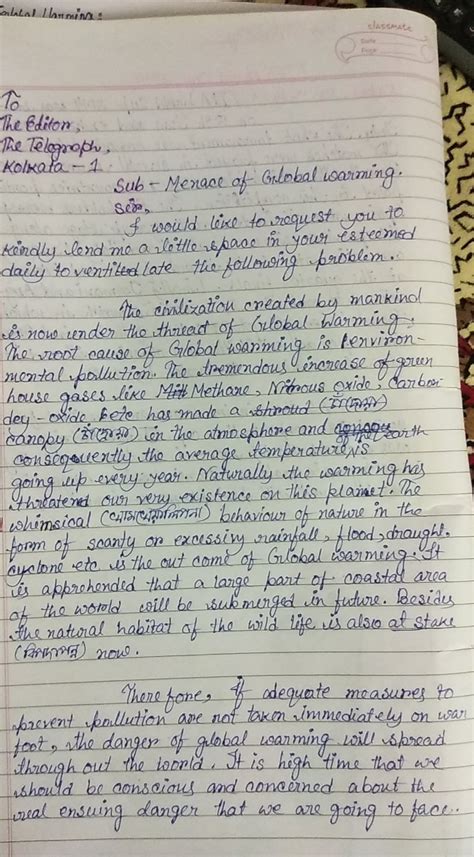 Global Warming:
classmate
Date
Page
To
The Editor,
The Telegraph,
Kolkata - 1
Sub - Menace of Global warming.
Sir,
I would like to request you to
kindly lend me a little space in your esteemed
daily to ventilate the following problem.
The civilization created by mankind
is now under the threat of Global Warming.
The root cause of Global warming is environ-
mental pollution. The tremendous increase of green
house gases like Methane, Nitrous oxide, Carbon
dey-oxide, etc has made a shroud
canopy in the atmosphere and
consequently the average temperature of the earth is
going up every year. Naturally the warming has
threatend our very existence on this planet. The
whimsical (খামখেয়ালিপনা) behaviour of nature in the
form of scanty or excessiv rainfall, flood, draught,
cyclone etc. is the out come of Global warming. It
is apprehended that a large part of coastal area
of the world will be submerged in future. Besides
the natural habitat of the wild life is also at stake
(বিপদাপন্ন) now.
Therefore, if adequate measures to
prevent pollution are not taken immediately on war
foot, the danger of global warming will spread
through out the world. It is high time that we
should be conscious and concerned about the
real ensuing danger that we are going to face.